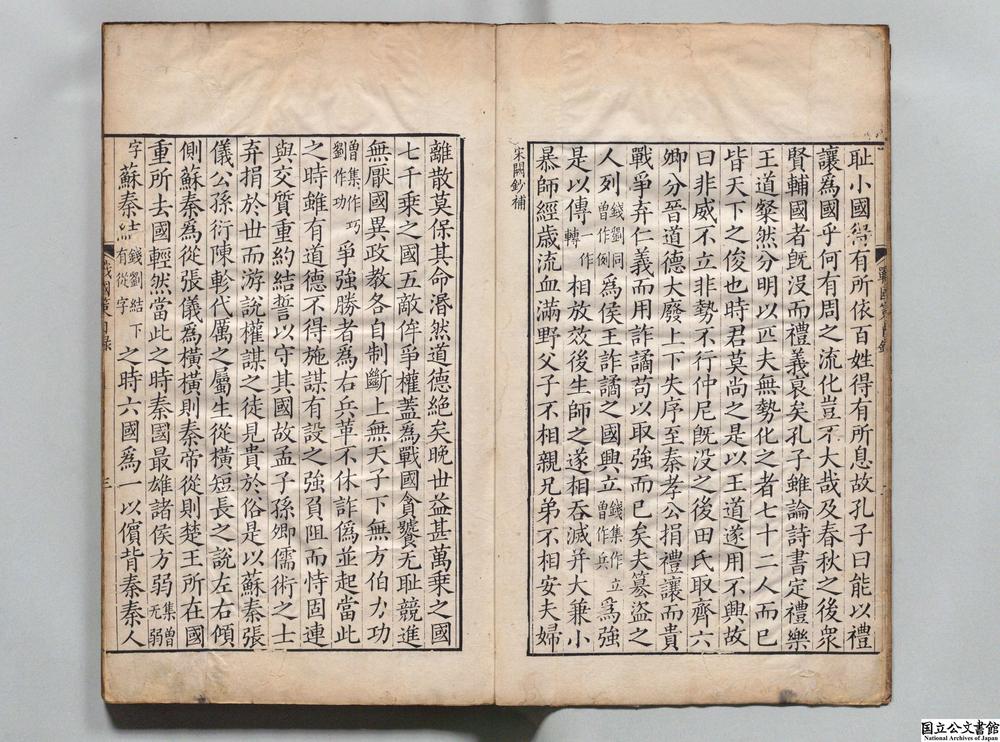 耻小國得有所依百姓得有所息故孔子曰能以禮
讓爲國乎何有周之流化豈不大哉及春秋之後衆
賢輔國者既没而禮義衰矣孔子雖論詩書定禮樂
王道粲然分明以匹夫無勢化之者七十二人而已
皆天下之俊也時君莫尚之是以王道遂用不興故
曰非威不立非勢不行仲尼既没之後田氏取齊六
卿分晉道德大廢上下失序至秦孝公捐禮讓而貴
戰爭弃仁義而用詐譎苟以取強而已矣夫篡盗之
人列錢劉同曾作例爲侯王詐譎之國興立錢集作立曾作兵爲強
是以傳作轉相放效後生師之遂相吞滅并大兼小
暴師經歲流血滿野父子不相親兄弟不相安夫婦
宋闕鈔補
離散莫保其命湣然道德絶矣晚世益甚萬乘之國
七千乘之國五敵侔爭權蓋爲戰國貪饕无耻競進
無厭國異政教各自制斷上無天子下無方伯力功
曾集作巧劉作功爭強勝者爲右兵革不休詐僞並起當此
之時雖有道德不得施謀有設之強負阻而恃固連
與交質重約結誓以守其國故孟子孫卿儒術之士
弃捐於世而游說權謀之徒見貴於俗是以蘇秦張
儀公孫衍陳軫代厲之屬生從橫短長之說左右傾
側蘇秦爲從張儀爲橫橫則秦帝從則楚王所在國
重所去國輕然當此之時秦國最雄諸侯方弱曾集无弱
字蘇秦結錢劉結下有從字之時六國爲一以儐背秦秦人
戰國策目録
三
国立公文書館
National Archives of Japan